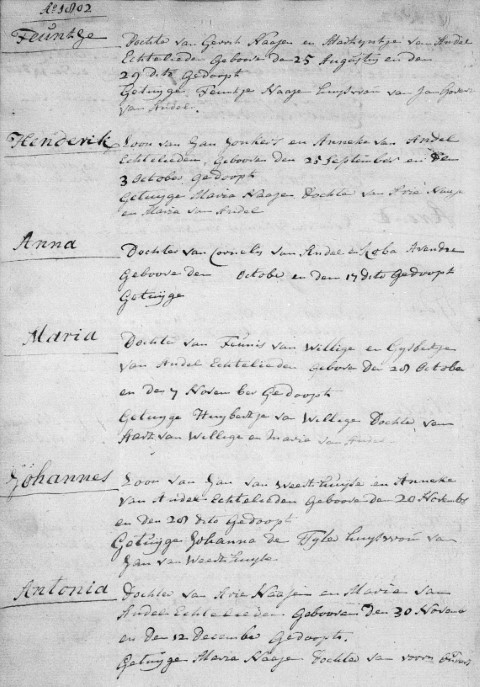 Ao 1802
Feuntge
Dochte van Gerrit Naajen en Mathysitje van Andel
Echtelieden Geboore den 25 Augustij en den
29 dito Gedoopt
Getuijgen Teuntje Naaje huijsvrou van Jan
van Andel
Henderik
Zoon van Jan Jonkers en Anneke van Andel
Echtelieden, Geboore den 25 September en de
3 October Gedoopt
Getuijge Maria Naajen Dochte van Arie Naaje
en Maria van Andel
Anna
Dochter van Cornelis van Andel en Koba Arendse
Geboore den October en den 17 dito Gedoopt
Getuijge
Maria
Dochte van Teunis van Willige en Gysbertje
van Andel Echtelieden geboore den 28 October
en den 7 November Gedoopt
Getuijge Huybertje van Willege Dochte van
van Willege en Maria van Andel
Johannes
Zoon van Jan van Weesthuijse en Anneke
van Andel Echtelieden Geboore den 20 November
en den 28 dito Gedoopt
Getuijge Johanna de huijsvrou van
Jan van Weesthuijse
Antonia
Dochter van Arie Naajen en Maria van
Andel Echtelieden Geboore den 30 Novem
en den 12 December Gedoopt.
Getuijge Maria Naajen Dochte van voorn